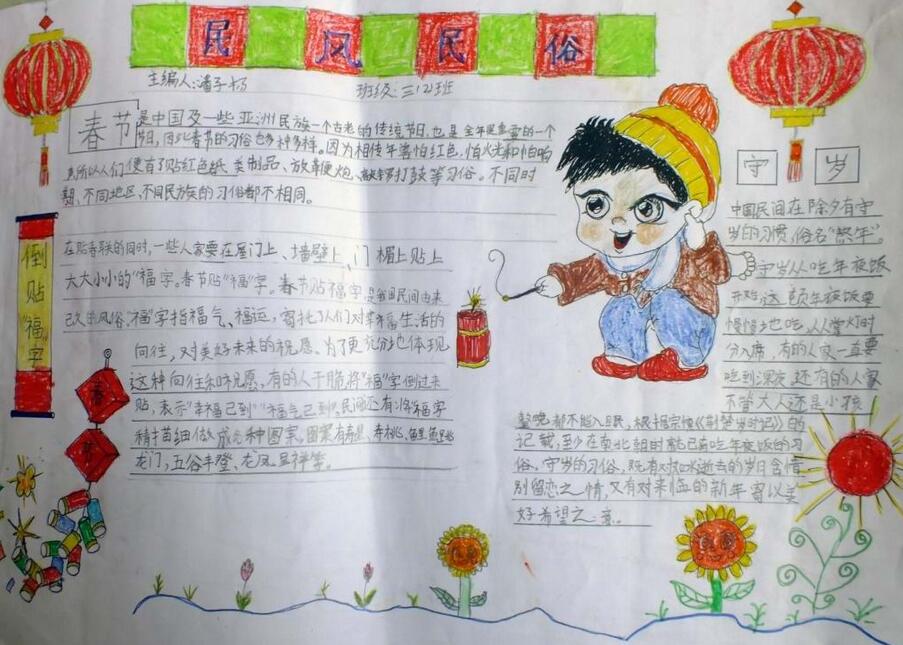 民风民俗
主编人:潘子杨 班级:三12班
春节
是中国及一些亚洲民族一个古老的传统节日,也是全年最重要的一个
节日,因此春节的习俗也多种多样。因为相传年害怕红色,怕火光和怕响
声所以人们便有了贴红色纸、类制品、放鞭炮、敲锣打鼓等习俗。不同时
期、不同地区、不同民族的习俗都不相同。
倒贴"福"字
在贴春联的同时,一些人家要在屋门上、墙壁上、门楣上贴上
大大小小的"福"字。春节贴"福"字。春节贴福字是我国民间由来
已久的风俗,"福"字指福气、福运,寄托了人们对幸福生活的
向往,对美好未来的祝愿。为了更充分地体现
这种向往和祝愿,有的人干脆将"福"字倒过来
贴,表示"幸福已到""福气已到"民间还有将"福"字
精描细做成各种图案,图案有寿星、寿桃、鲤鱼跳
龙门,五谷丰登、龙凤呈祥等。
春
节
守岁
中国民间在除夕有守
岁的习惯,俗名"熬年"。
守岁从吃年夜饭
开始,这顿年夜饭要
慢慢地吃,从掌灯时
分入席,有的人家一直要
吃到深夜,还有的人家
不管大人还是小孩
整晚都不能入眠,根据宗懔《荆楚岁时记》的
记载,至少在南北朝时就已有吃年夜饭的习
俗,守岁的习俗,既有对如水逝去的岁月含惜
别留恋之情,又有对来临的新年寄以美
好希望之意。